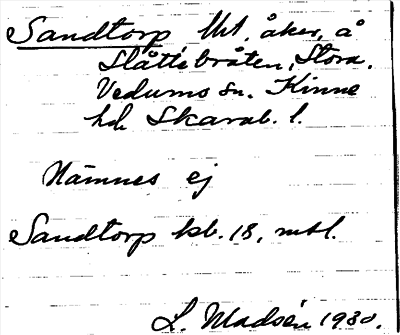 Sandtorp Ut. åker, å
Slåttebråten, Stora.
Vedums sn. Kinne
hd. Skarab. l.
Nämnes ej
Sandtorp kb. 18, mtl.
L. Madsén 1930.